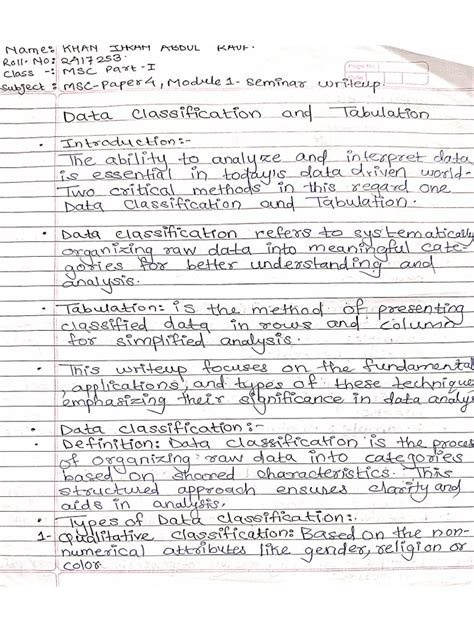 Name: KHAN IKRAM ABDUL RAUF.
Roll. No: 2417253.
Class -: MSC Part-I
Subject: MSC-Paper 4, Module 1- Seminar writeup.
Page No.
Date
Data Classification and Tabulation
• Introduction:-
The ability to analyze and interpret data
is essential in today's data driven world-
Two critical methods in this regard one
Data Classification and Tabulation.
• Data classification refers to systematically
organizing raw data into meaningful cate-
gories for better understanding and
analysis.
• Tabulation: is the method of presenting
classified data in rows and column
for simplified analysis.
• This writeup focuses on the fundamental
, applications, and types of these technique
emphasizing their significance in data analy
• Data classification:-
• Definition: Data classification is the proces
of organizing raw data into categories
based on shared characteristics. This
structured approach ensures clarity and
aids in analysis.
• Types of Data classification:.
1- Qualitative classification: Based on the non-
numerical attributes like gender, religion or
color.